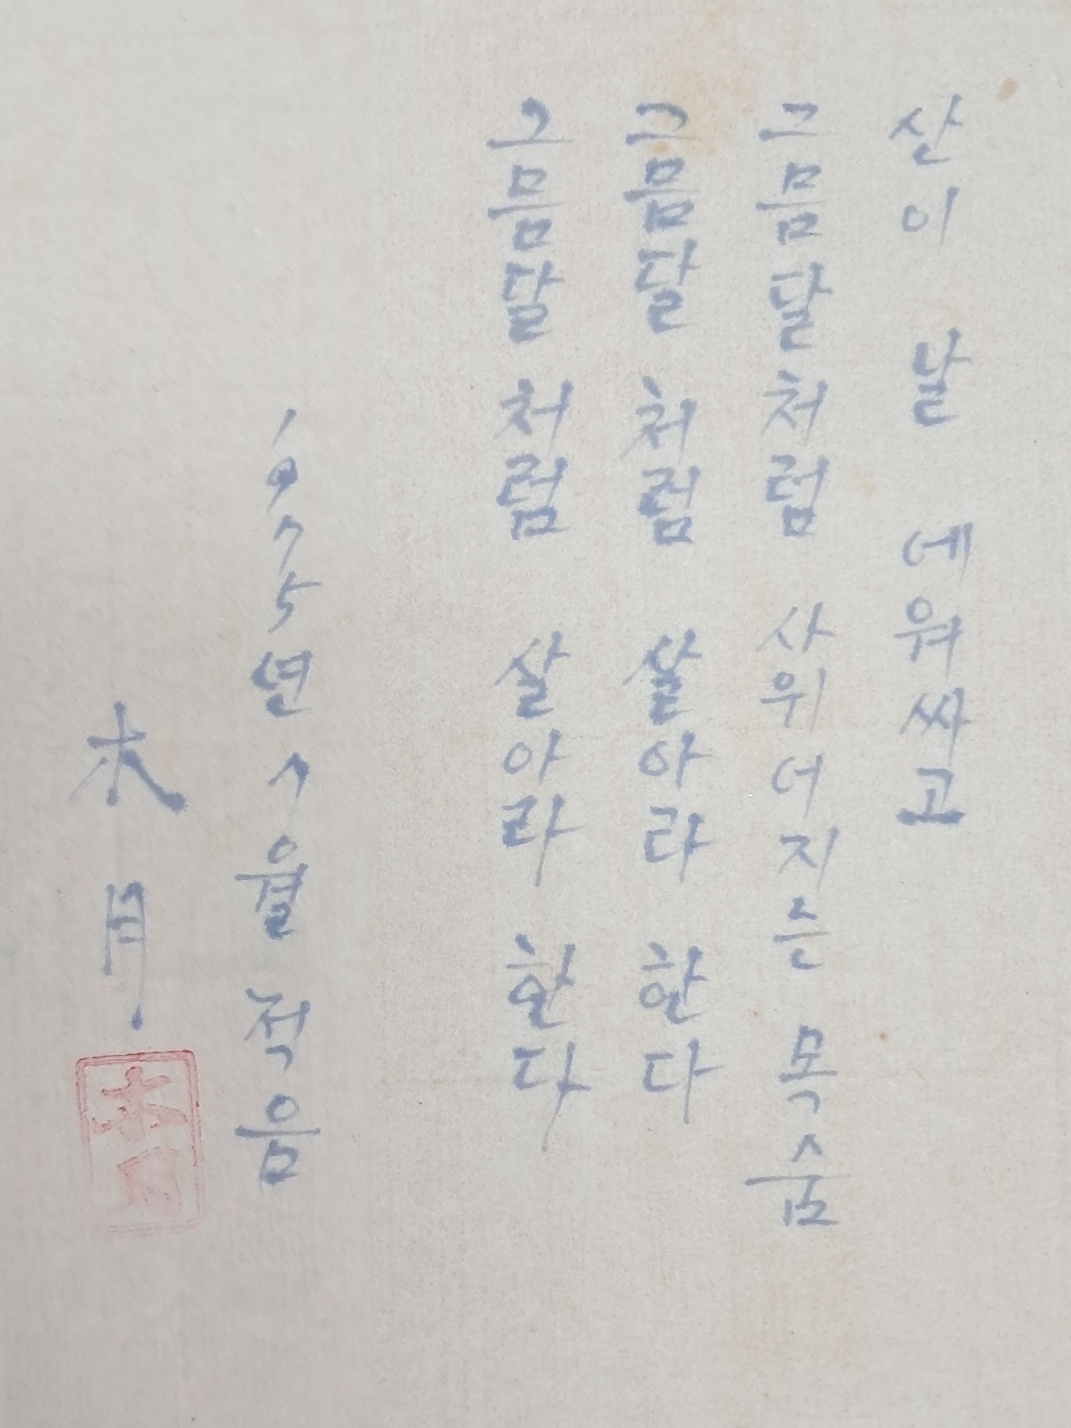 산이 날 에워싸고
그믐달처럼 사위어지는 목숨
그믐달 처럼 살아라 한다
그믐달 처럼 살아라 한다
1975년 1월 적음
木月
木月